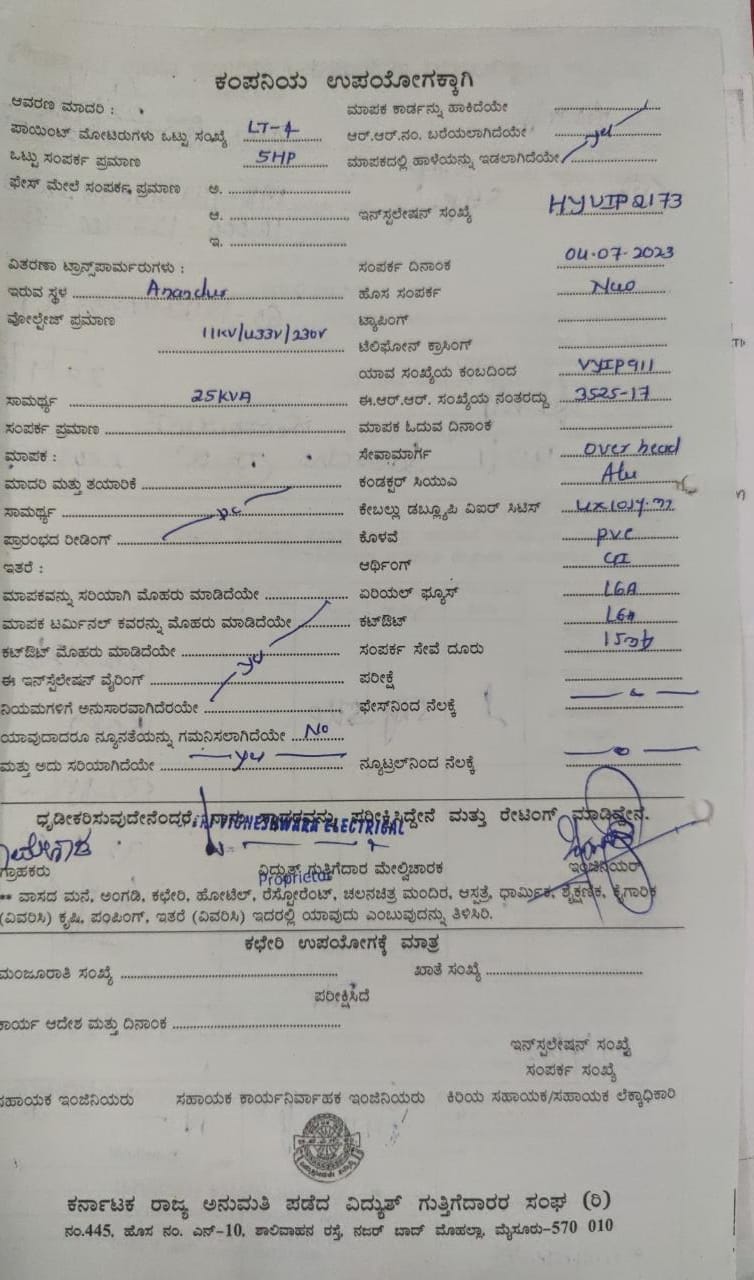 ಕಂಪನಿಯ ಉಪಯೋಗಕ್ಕಾಗಿ
ಆವರಣ ಮಾದರಿ : ಮಾಪಕ ಕಾರ್ಡನ್ನು ಹಾಕಿದೆಯೇ ..........
ಪಾಯಿಂಟ್ ಮೋಟರುಗಳು ಒಟ್ಟು ಸಂಖ್ಯೆ LT-4 ಆರ್.ಆರ್.ನಂ. ಬರೆಯಲಾಗಿದೆಯೇ yes
ಒಟ್ಟು ಸಂಪರ್ಕ ಪ್ರಮಾಣ 5HP ಮಾಪಕದಲ್ಲಿ ಹಾಳೆಯನ್ನು ಇಡಲಾಗಿದೆಯೇ ..........
ಫೇಸ್ ಮೇಲೆ ಸಂಪರ್ಕ ಪ್ರಮಾಣ ಅ. ..........
ಆ. .......... ಇನ್‌ಸ್ಟಲೇಷನ್ ಸಂಖ್ಯೆ HYVIP2173
ಇ. ..........
ವಿತರಣಾ ಟ್ರಾನ್ಸ್‌ಫಾರ್ಮರುಗಳು : ಸಂಪರ್ಕ ದಿನಾಂಕ 04-07-2023
ಇರುವ ಸ್ಥಳ Anandur ಹೊಸ ಸಂಪರ್ಕ New
ವೋಲ್ಟೇಜ್ ಪ್ರಮಾಣ 11KV/433V/230V ಟ್ಯಾಪಿಂಗ್ ..........
ಟೆಲಿಫೋನ್ ಕ್ರಾಸಿಂಗ್ ..........
ಯಾವ ಸಂಖ್ಯೆಯ ಕಂಬದಿಂದ VYIP911
ಸಾಮರ್ಥ್ಯ 25KVA ಈ.ಆರ್.ಆರ್. ಸಂಖ್ಯೆಯ ನಂತರದ್ದು 3525-17
ಸಂಪರ್ಕ ಪ್ರಮಾಣ .......... ಮಾಪಕ ಓದುವ ದಿನಾಂಕ ..........
ಮಾಪಕ : ಸೇವಾಮಾರ್ಗ over head
ಮಾದರಿ ಮತ್ತು ತಯಾರಿಕೆ .......... ಕಂಡಕ್ಟರ್ ಸಿಯುಎ Alu
ಸಾಮರ್ಥ್ಯ .......... ಕೇಬಲ್ಲು ಡಬ್ಲ್ಯೂಪಿ ವಿಐಆರ್ ಸಿಟಿಸ್
ಪ್ರಾರಂಭದ ರೀಡಿಂಗ್ .......... ಕೊಳವೆ PVC
ಇತರೆ : ಅರ್ಥಿಂಗ್ GI
ಮಾಪಕವನ್ನು ಸರಿಯಾಗಿ ಮೊಹರು ಮಾಡಿದೆಯೇ .......... ಏರಿಯಲ್ ಫ್ಯೂಸ್ 16A
ಮಾಪಕ ಟರ್ಮಿನಲ್ ಕವರನ್ನು ಮೊಹರು ಮಾಡಿದೆಯೇ .......... ಕಟ್‌ಔಟ್ 16A
ಕಟ್‌ಔಟ್ ಮೊಹರು ಮಾಡಿದೆಯೇ yes ಸಂಪರ್ಕ ಸೇವೆ ದೂರು
ಈ ಇನ್‌ಸ್ಟೆಲೇಷನ್ ವೈರಿಂಗ್ .......... ಪರೀಕ್ಷೆ ..........
ನಿಯಮಗಳಿಗೆ ಅನುಸಾರವಾಗಿದೆರಯೇ .......... ಫೇಸ್‌ನಿಂದ ನೆಲಕ್ಕೆ
ಯಾವುದಾದರೂ ನ್ಯೂನತೆಯನ್ನು ಗಮನಿಸಲಾಗಿದೆಯೇ No
ಮತ್ತು ಅದು ಸರಿಯಾಗಿದೆಯೇ yes ನ್ಯೂಟ್ರಲ್‌ನಿಂದ ನೆಲಕ್ಕೆ
ಧೃಡೀಕರಿಸುವುದೇನೆಂದರೆ, ನಾನು ಪರೀಕ್ಷಿಸಿದ್ದೇನೆ ಮತ್ತು ರೇಟಿಂಗ್ ಮಾಡಿದ್ದೇನೆ.
VIGNESHWARA ELECTRICAL
ಗ್ರಾಹಕರು ವಿದ್ಯುತ್ ಗುತ್ತಿಗೆದಾರ ಮೇಲ್ವಿಚಾರಕ ಇಂಜಿನಿಯರ್
Proprietor
** ವಾಸದ ಮನೆ, ಅಂಗಡಿ, ಕಛೇರಿ, ಹೋಟೆಲ್, ರೆಸ್ಟೋರೆಂಟ್, ಚಲನಚಿತ್ರ ಮಂದಿರ, ಆಸ್ಪತ್ರೆ, ಧಾರ್ಮಿಕ, ಶೈಕ್ಷಣಿಕ, ಕೈಗಾರಿಕ
(ವಿವರಿಸಿ) ಕೃಷಿ, ಪಂಪಿಂಗ್, ಇತರೆ (ವಿವರಿಸಿ) ಇದರಲ್ಲಿ ಯಾವುದು ಎಂಬುವುದನ್ನು ತಿಳಿಸಿರಿ.
ಕಛೇರಿ ಉಪಯೋಗಕ್ಕೆ ಮಾತ್ರ
ಮಂಜೂರಾತಿ ಸಂಖ್ಯೆ .......... ಖಾತೆ ಸಂಖ್ಯೆ ..........
ಪರೀಕ್ಷಿಸಿದೆ
ಕಾರ್ಯ ಆದೇಶ ಮತ್ತು ದಿನಾಂಕ ..........
ಇನ್‌ಸ್ಟಲೇಷನ್ ಸಂಖ್ಯೆ
ಸಂಪರ್ಕ ಸಂಖ್ಯೆ
ಸಹಾಯಕ ಇಂಜಿನಿಯರು ಸಹಾಯಕ ಕಾರ್ಯನಿರ್ವಾಹಕ ಇಂಜಿನಿಯರು ಕಿರಿಯ ಸಹಾಯಕ/ಸಹಾಯಕ ಲೆಕ್ಕಾಧಿಕಾರಿ
ಕರ್ನಾಟಕ ರಾಜ್ಯ ಅನುಮತಿ ಪಡೆದ ವಿದ್ಯುತ್ ಗುತ್ತಿಗೆದಾರರ ಸಂಘ (ರಿ)
ನಂ.445, ಹೊಸ ನಂ. ಎನ್-10, ಶಾಲಿವಾಹನ ರಸ್ತೆ, ನಜರ್ ಬಾದ್ ಮೊಹಲ್ಲಾ, ಮೈಸೂರು-570 010